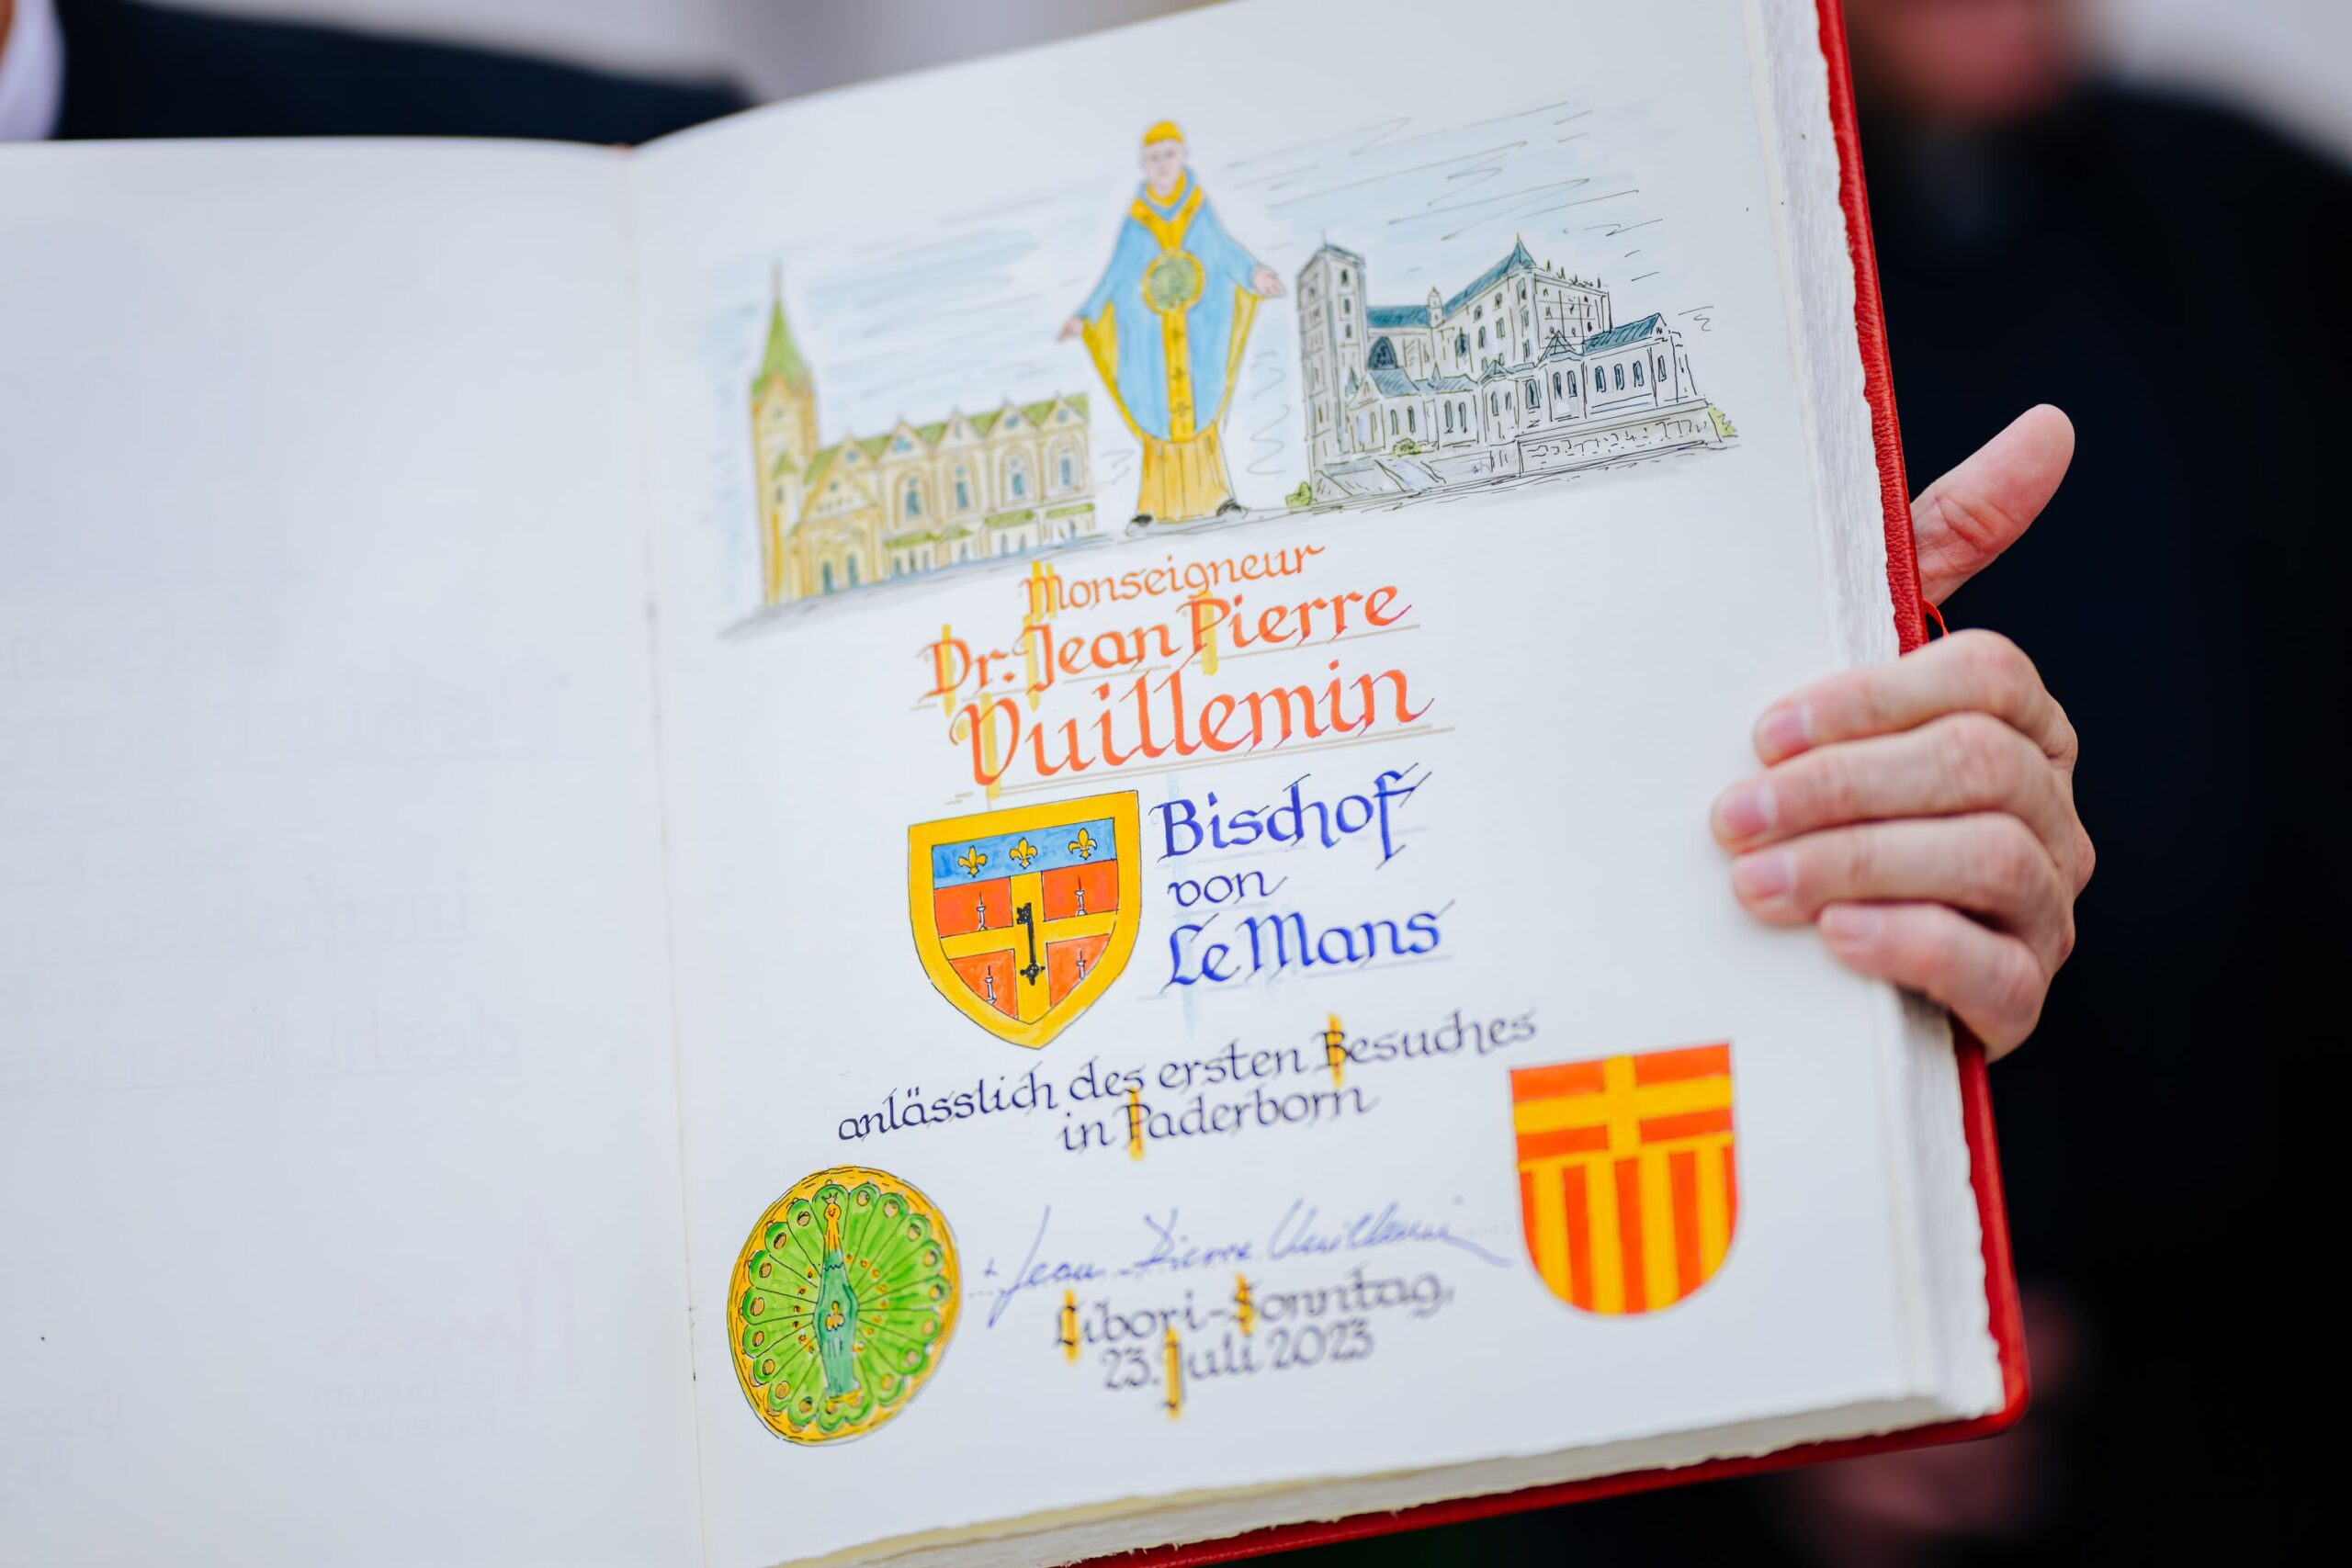 Monseigneur
Dr. Jean Pierre
Vuillemin
Bischof
von
Le Mans
anlässlich des ersten Besuches
in Paderborn
+ Jean-Pierre Vuillemin
Libori-Sonntag,
23. Juli 2023